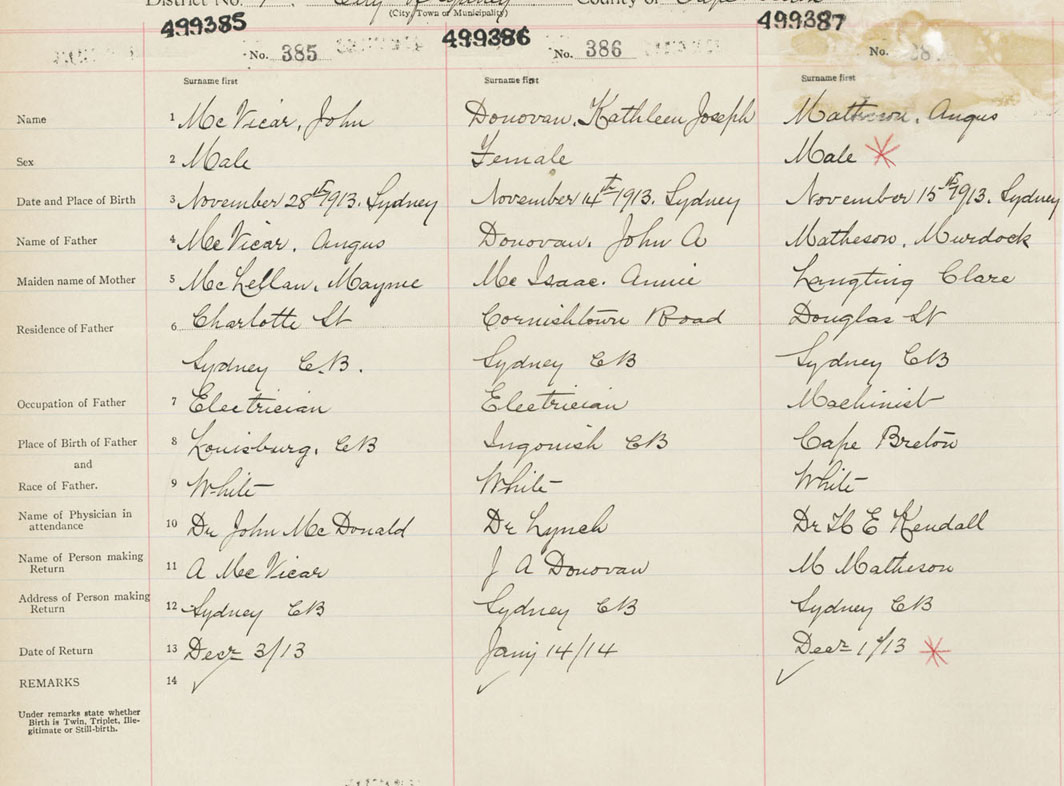 District No. City of Sydney County of Cape
(City, Town or Municipality)
499385 499386 499387
No. 385 No. 386 No.
Surname first Surname first Surname first
Name 1 McVicar, John Donovan, Kathleen Joseph Matheson, Angus
Sex 2 Male Female Male
Date and Place of Birth 3 November 28th 1913. Sydney November 14th 1913. Sydney November 15th 1913. Sydney
Name of Father 4 McVicar. Angus Donovan. John A Matheson, Murdock
Maiden name of Mother 5 McLellan. Mayme McIsaac. Annie Clare
Residence of Father 6 Charlotte St Cornishtown Road Douglas St
Sydney C.B. Sydney CB Sydney CB
Occupation of Father 7 Electrician Electrician Machinist
Place of Birth of Father 8 Louisburg. CB Ingonish CB Cape Breton
and
Race of Father. 9 White White White
Name of Physician in
attendance 10 Dr John McDonald Dr Lynch Dr H E Kendall
Name of Person making
Return 11 A McVicar J A Donovan M Matheson
Address of Person making
Return 12 Sydney CB Sydney CB Sydney CB
Date of Return 13 Decr 3/13 Jany 14/14 Decr /13
REMARKS 14
Under remarks state whether
Birth is Twin, Triplet, Ille-
gitimate or Still-birth.